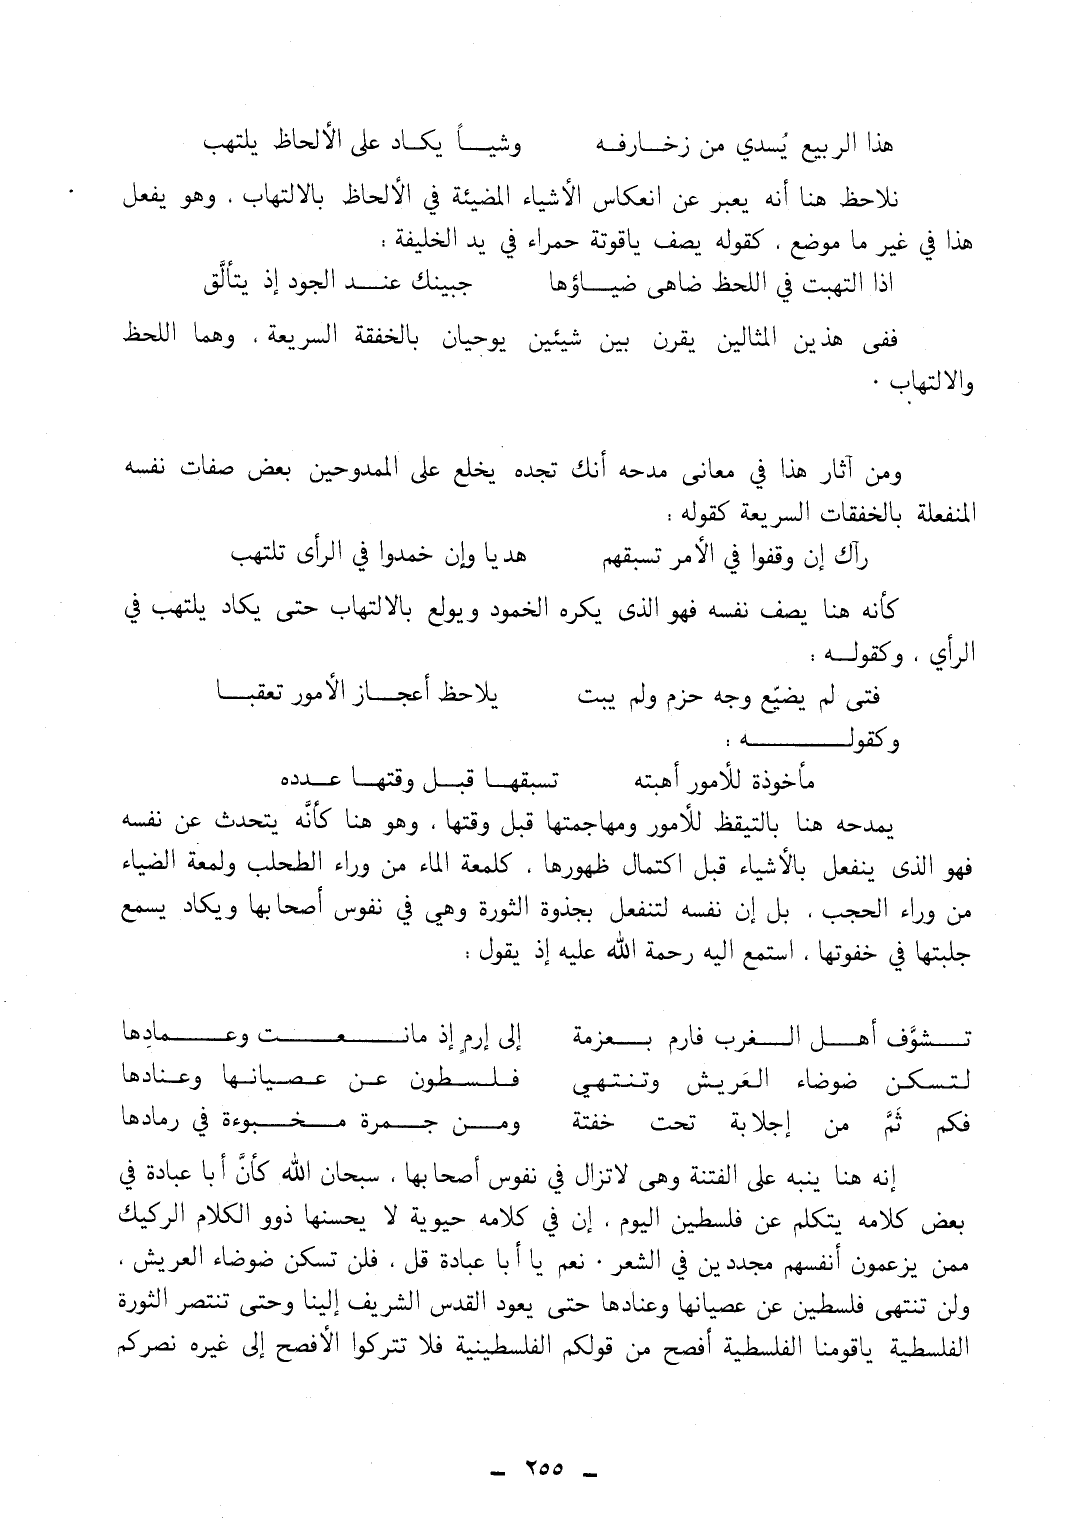 هذا الربيع يُسدي من زخارفه وشياً يكاد على الألحاظ يلتهب
نلاحظ هنا أنه يعبر عن انعكاس الأشياء المضيئة في الألحاظ بالالتهاب ، وهو يفعل
هذا في غير ما موضع ، كقوله يصف ياقوتة حمراء في يد الخليفة :
اذا التهبت في اللحظ ضاهى ضياؤها جبينك عند الجود إذ يتألَّق
ففى هذين المثالين يقرن بين شيئين يوحيان بالخفقة السريعة ، وهما اللحظ
والالتهاب ٠
ومن آثار هذا في معانى مدحه أنك تجده يخلع على الممدوحين بعض صفات نفسه
المنفعلة بالخفقات السريعة كقوله :
رآك إن وقفوا في الأمر تسبقهم هديا وإن خمدوا في الرأى تلتهب
كأنه هنا يصف نفسه فهو الذى يكره الخمود ويولع بالالتهاب حتى يكاد يلتهب في
الرأي ، وكقولـه :
فتى لم يضيّع وجه حزم ولم يبت يلاحظ أعجاز الأمور تعقبا
وكقولـه :
مأخوذة للأمور أهبته تسبقها قبل وقتها عدده
يمدحه هنا بالتيقظ للأمور ومهاجمتها قبل وقتها ، وهو هنا كأنَّه يتحدث عن نفسه
فهو الذى ينفعل بالأشياء قبل اكتمال ظهورها ، كلمعة الماء من وراء الطحلب ولمعة الضياء
من وراء الحجب ، بل إن نفسه لتنفعل بجذوة الثورة وهي في نفوس أصحابها ويكاد يسمع
جلبتها في خفوتها ، استمع اليه رحمة الله عليه إذ يقول :
تشوَّف أهل الغرب فارم بعزمة إلى إرمٍ إذ مانعت وعمادها
لتسكن ضوضاء العَريش وتنتهي فلسطون عن عصيانها وعنادها
فكم ثَمَّ من إجلابة تحت خفتة ومن جمرة مخبوءة في رمادها
إنه هنا ينبه على الفتنة وهى لاتزال في نفوس أصحابها ، سبحان الله كأنَّ أبا عبادة في
بعض كلامه يتكلم عن فلسطين اليوم ، إن في كلامه حيوية لا يحسنها ذوو الكلام الركيك
ممن يزعمون أنفسهم مجددين في الشعر ٠ نعم يا أبا عبادة قل ، فلن تسكن ضوضاء العريش ،
ولن تنتهى فلسطين عن عصيانها وعنادها حتى يعود القدس الشريف إلينا وحتى تنتصر الثورة
الفلسطية ياقومنا الفلسطية أفصح من قولكم الفلسطينية فلا تتركوا الأفصح إلى غيره نصركم
– ٢٥٥ –